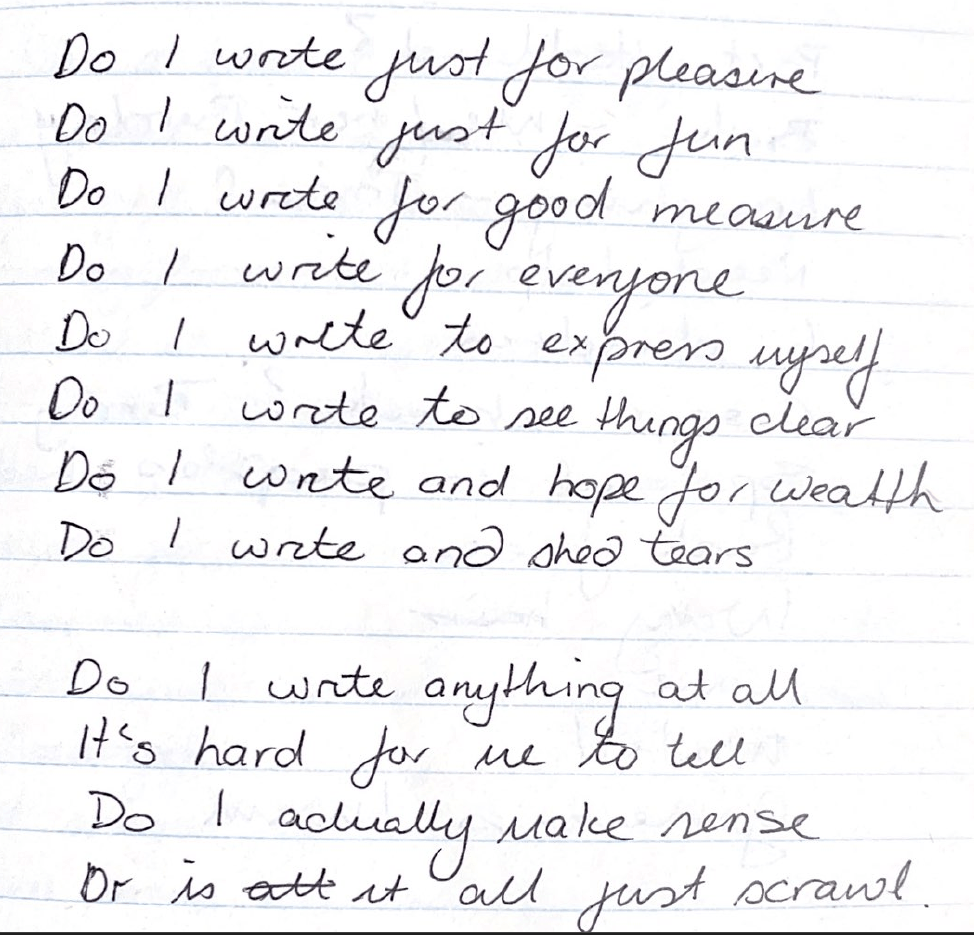 Do I write just for pleasure
Do I write just for fun
Do I write for good measure
Do I write for everyone
Do I write to express myself
Do I write to see things clear
Do I write and hope for wealth
Do I write and shed tears
Do I write anything at all
It's hard for me to tell
Do I actually make sense
Or is all it all just scrawl.